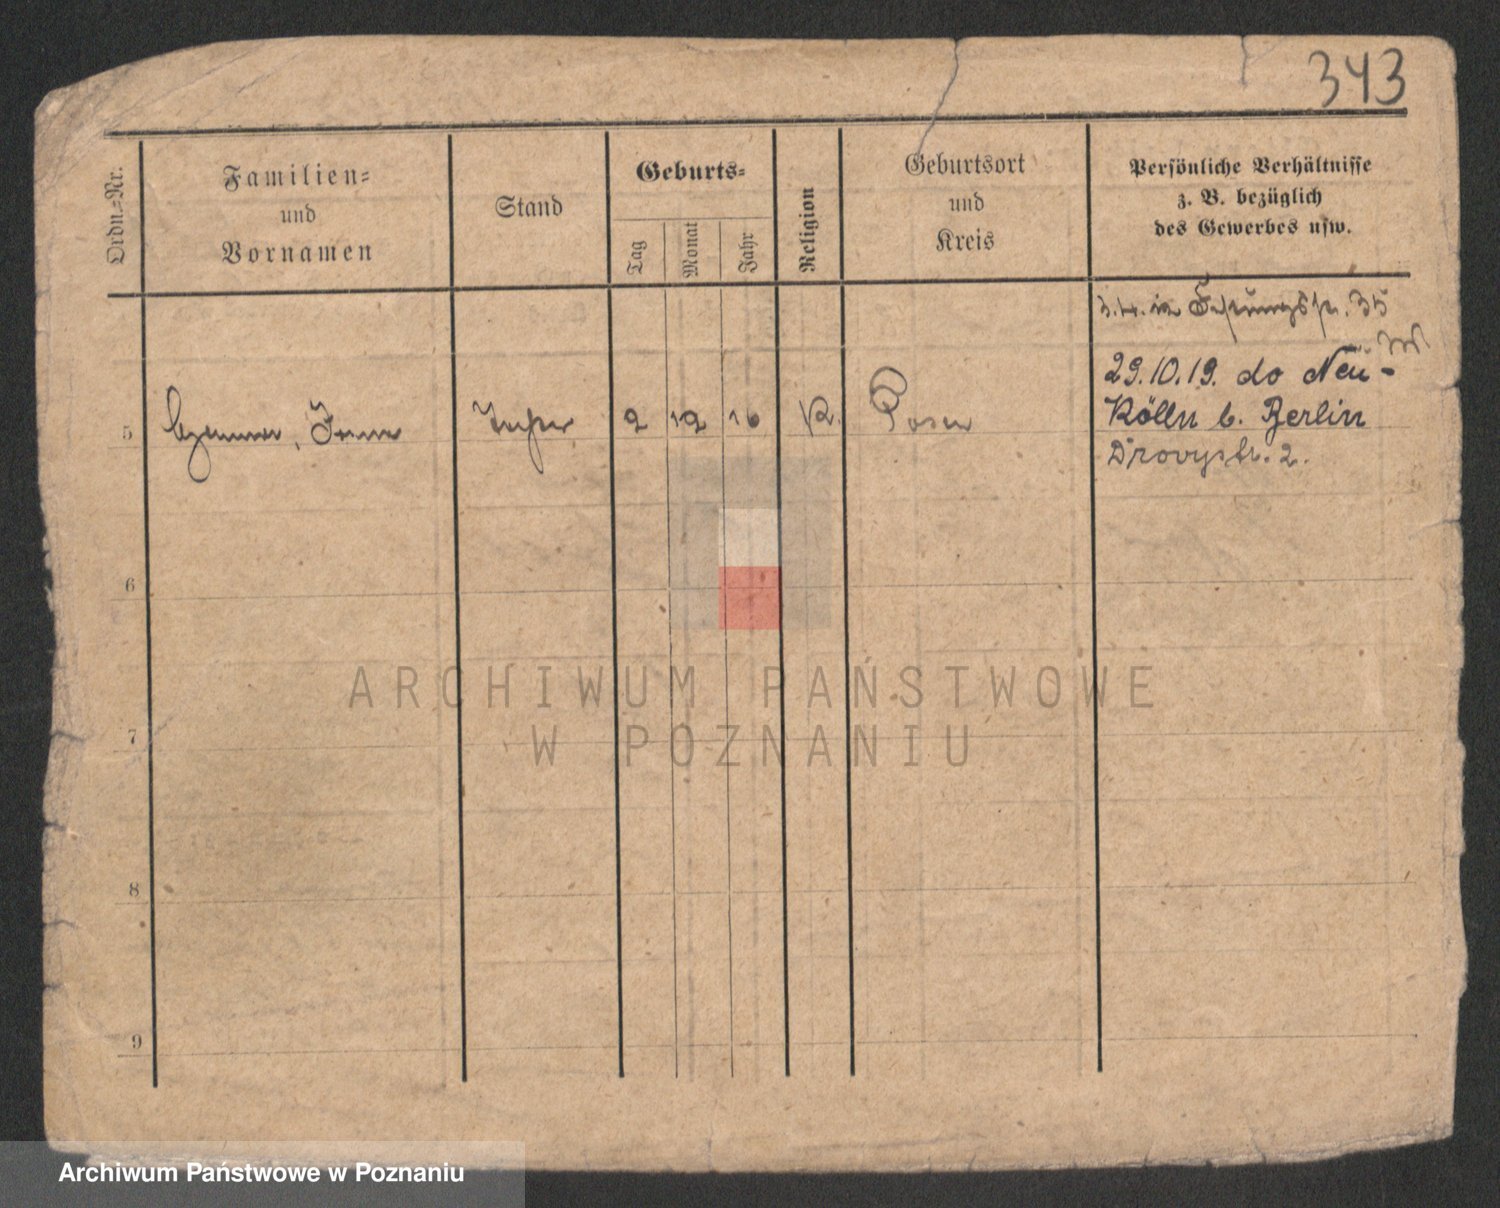 343
Ordn.=Nr.
Familien=
und
Vornamen
Stand
Geburts=
Tag
Monat
Jahr
Religion
Geburtsort
und
Kreis
Persönliche Verhältnisse
z. B. bezüglich
des Gewerbes usw.
35
29.10.19. do Neu-
5 2 12 16 K. Posen Kölln b. Berlin
2.
6
7
8
9
ARCHIWUM PAŃSTWOWE
W POZNANIU
Archiwum Państwowe w Poznaniu